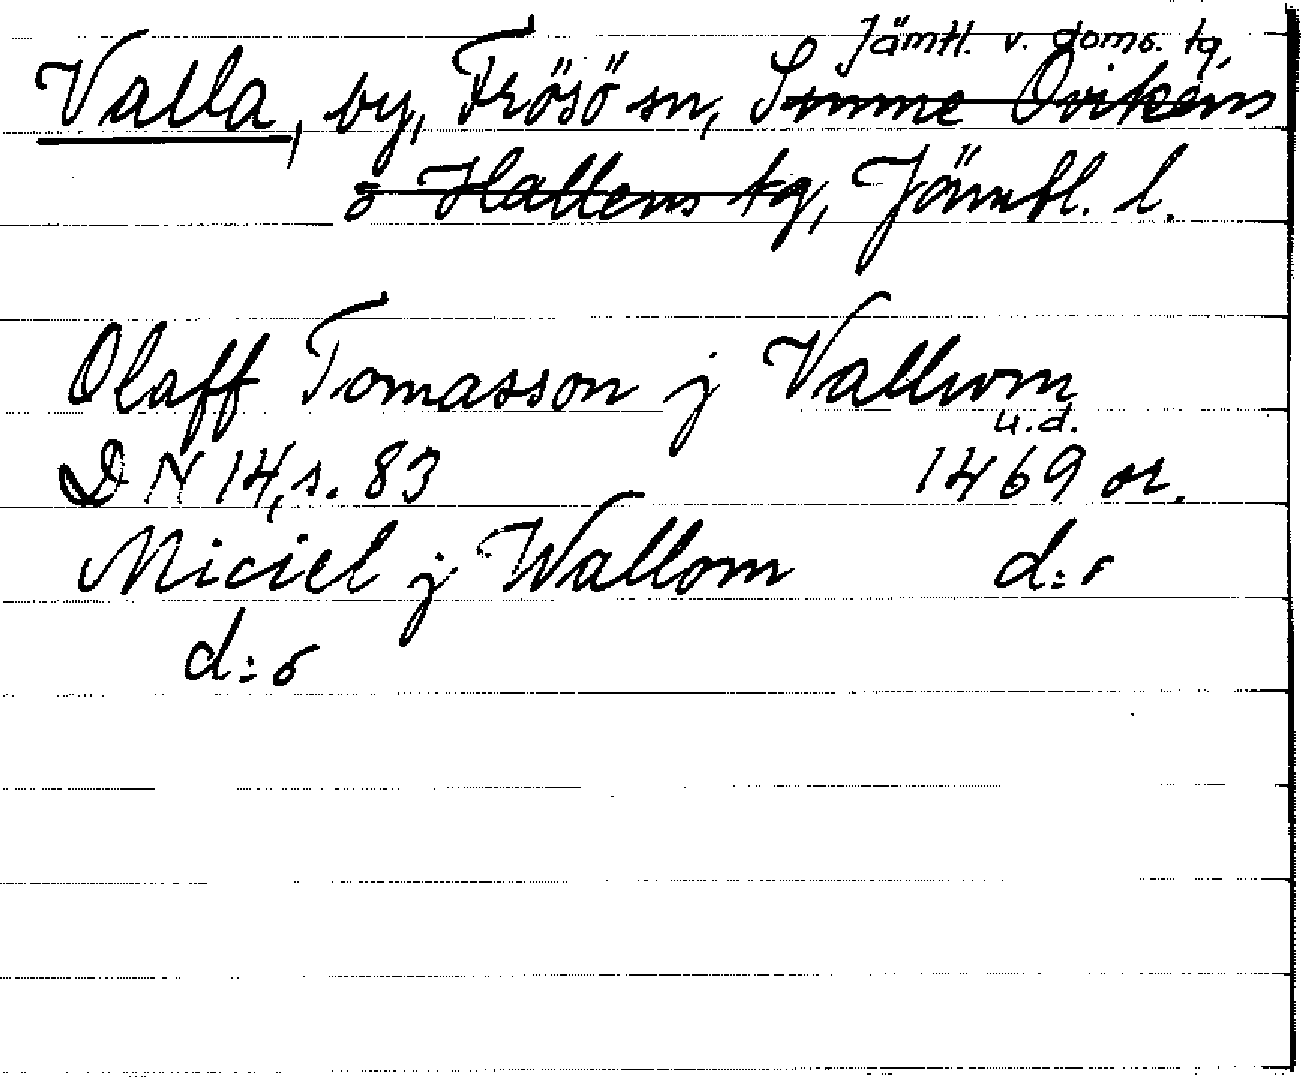 Jämtl. v. doms. tg.
Valla, by, Frösö sn, Sunne Ovikens
o Hallens tg, Jämtl. l.
Olaff Tomasson j Vallwm
u.d.
DN 14, s. 83 1469 or.
Miciel j Wallom d:o
d:o